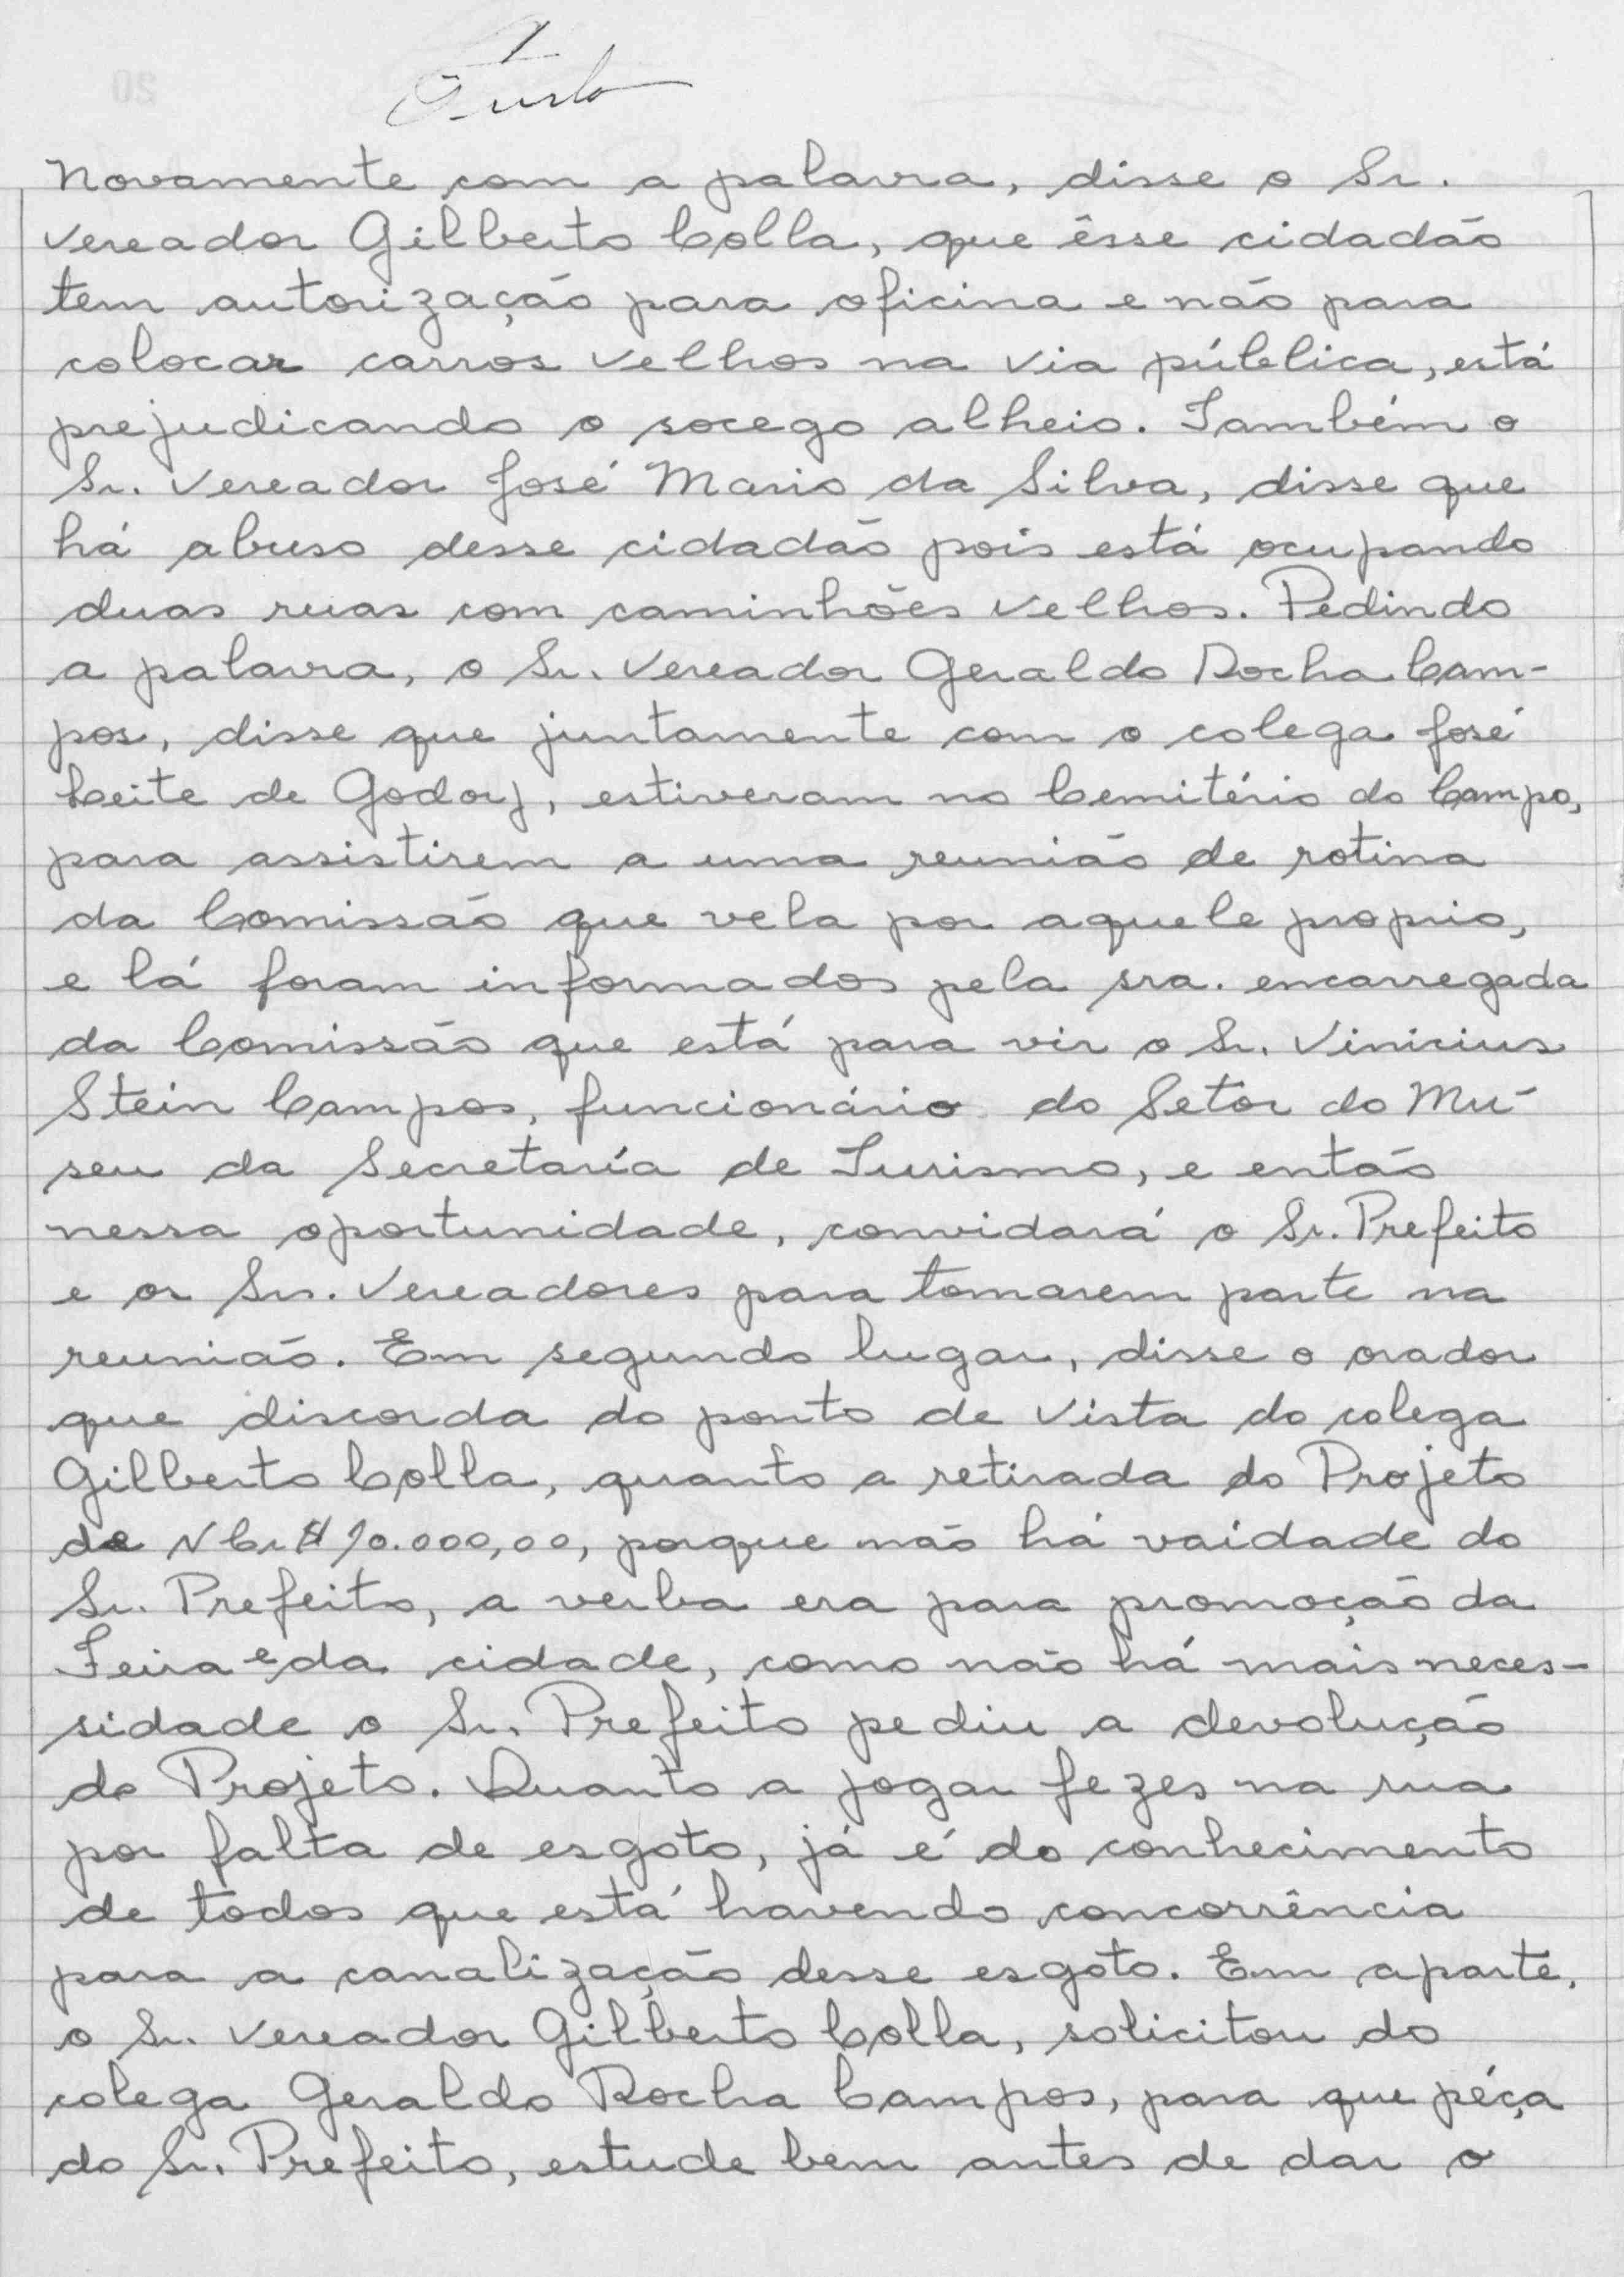 Novamente com a palavra, disse o Sr.
Vereador Gilberto Colla, que êsse cidadão
tem autorização para oficina e não para
colocar carros velhos na via pública, está
prejudicando o socego alheio. Também o
Sr. Vereador José Mario da Silva, disse que
há abuso desse cidadão pois está ocupando
duas ruas com caminhões velhos. Pedindo
a palavra, o Sr. Vereador Geraldo Rocha Cam-
pos, disse que juntamente com o colega José
Leite de Godoy, estiveram no Cemitério do Campo,
para assistirem a uma reunião de rotina
da Comissão que vela por aquele proprio,
e lá foram informados pela sra. encarregada
da Comissão que está para vir o Sr. Vinicius
Stein Campos, funcionário do Setor do Mu-
seu da Secretaría de Turismo, e então
nessa oportunidade, convidará o Sr. Prefeito
e os Srs. Vereadores para tomarem parte na
reunião. Em segundo lugar, disse o orador
que discorda do ponto de vista do colega
Gilberto Colla, quanto a retirada do Projeto
de NCr$ 10.000,00, porque não há vaidade do
Sr. Prefeito, a verba era para promoção da
Feira e da cidade, como não há mais neces-
sidade o Sr. Prefeito pediu a devolução
do Projeto. Quanto a jogar fezes na rua
por falta de esgoto, já é do conhecimento
de todos que está havendo concorrência
para a canalização desse esgoto. Em aparte,
o Sr. Vereador Gilberto Colla, solicitou do
colega Geraldo Rocha Campos, para que péça
do Sr. Prefeito, estude bem antes de dar o